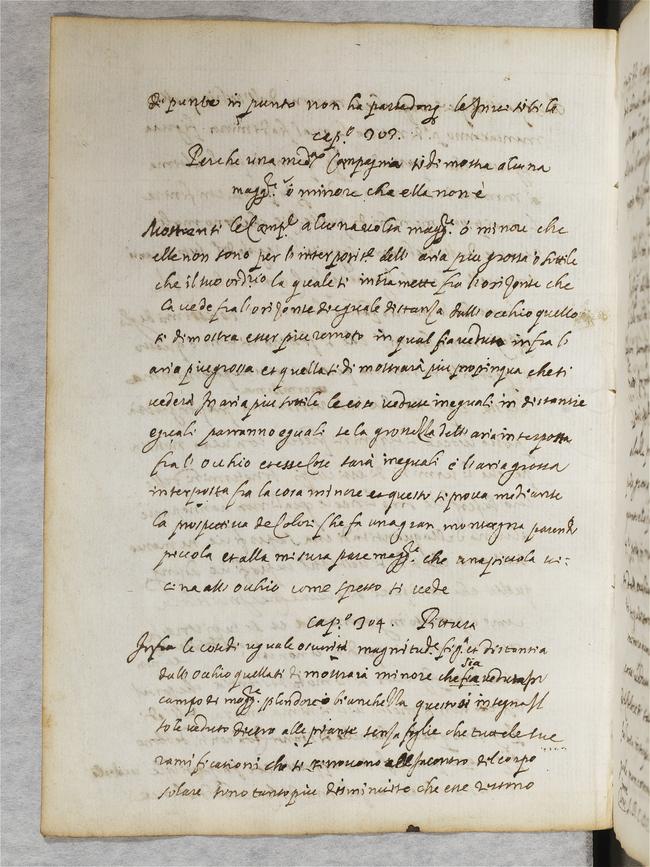 di punto in punto non ha le Invisibile
cap.º 303.
Perche una med.ª Campagna si dimostra alcuna
magg.re ò minore che ella non è
Mostransi le Camp.e alcuna volta magg.re ò minore che
elle non sono per l'interposit.e dell' aria piu grossa ò sottile
che il suo ord.rio la quale s'inframette fra l'orizonte che
la vede fra l'orizonte di eguale distanza dall' occhio quello
si dimostra esser piu remoto in qual fia veduto infra l'
aria piu grossa et quella si dimostrarà piu propinqua che si
vederà In aria piu sottile le cose vedute ineguali in distantie
eguali parranno eguali se la grossezza dell' aria interposta
fra l' occhio et esse Cose sarà ineguali è l'aria grossa
interposta fra la cosa minore et questo si prova mediante
la prospettiva de Colori che fa una gran montagna parendo
piccola et alla misura pare magg.re che una piccola vi-
cina all' occhio come spesso si vede
cap.º 304. Pittura
Infra le cose di uguale oscurità magnitud.e fig.ª et distantia
dall' occhio quella si dimostrarà minore che sia veduta In
campo di magg.re splendore ò bianchezza questo ci insegna Il
sole veduto dietro alle piante senza foglie che tutte le sue
ramificationi che si ritrovono all' Incontro del corpo
solare sono tanto piu diminuite che esse restono